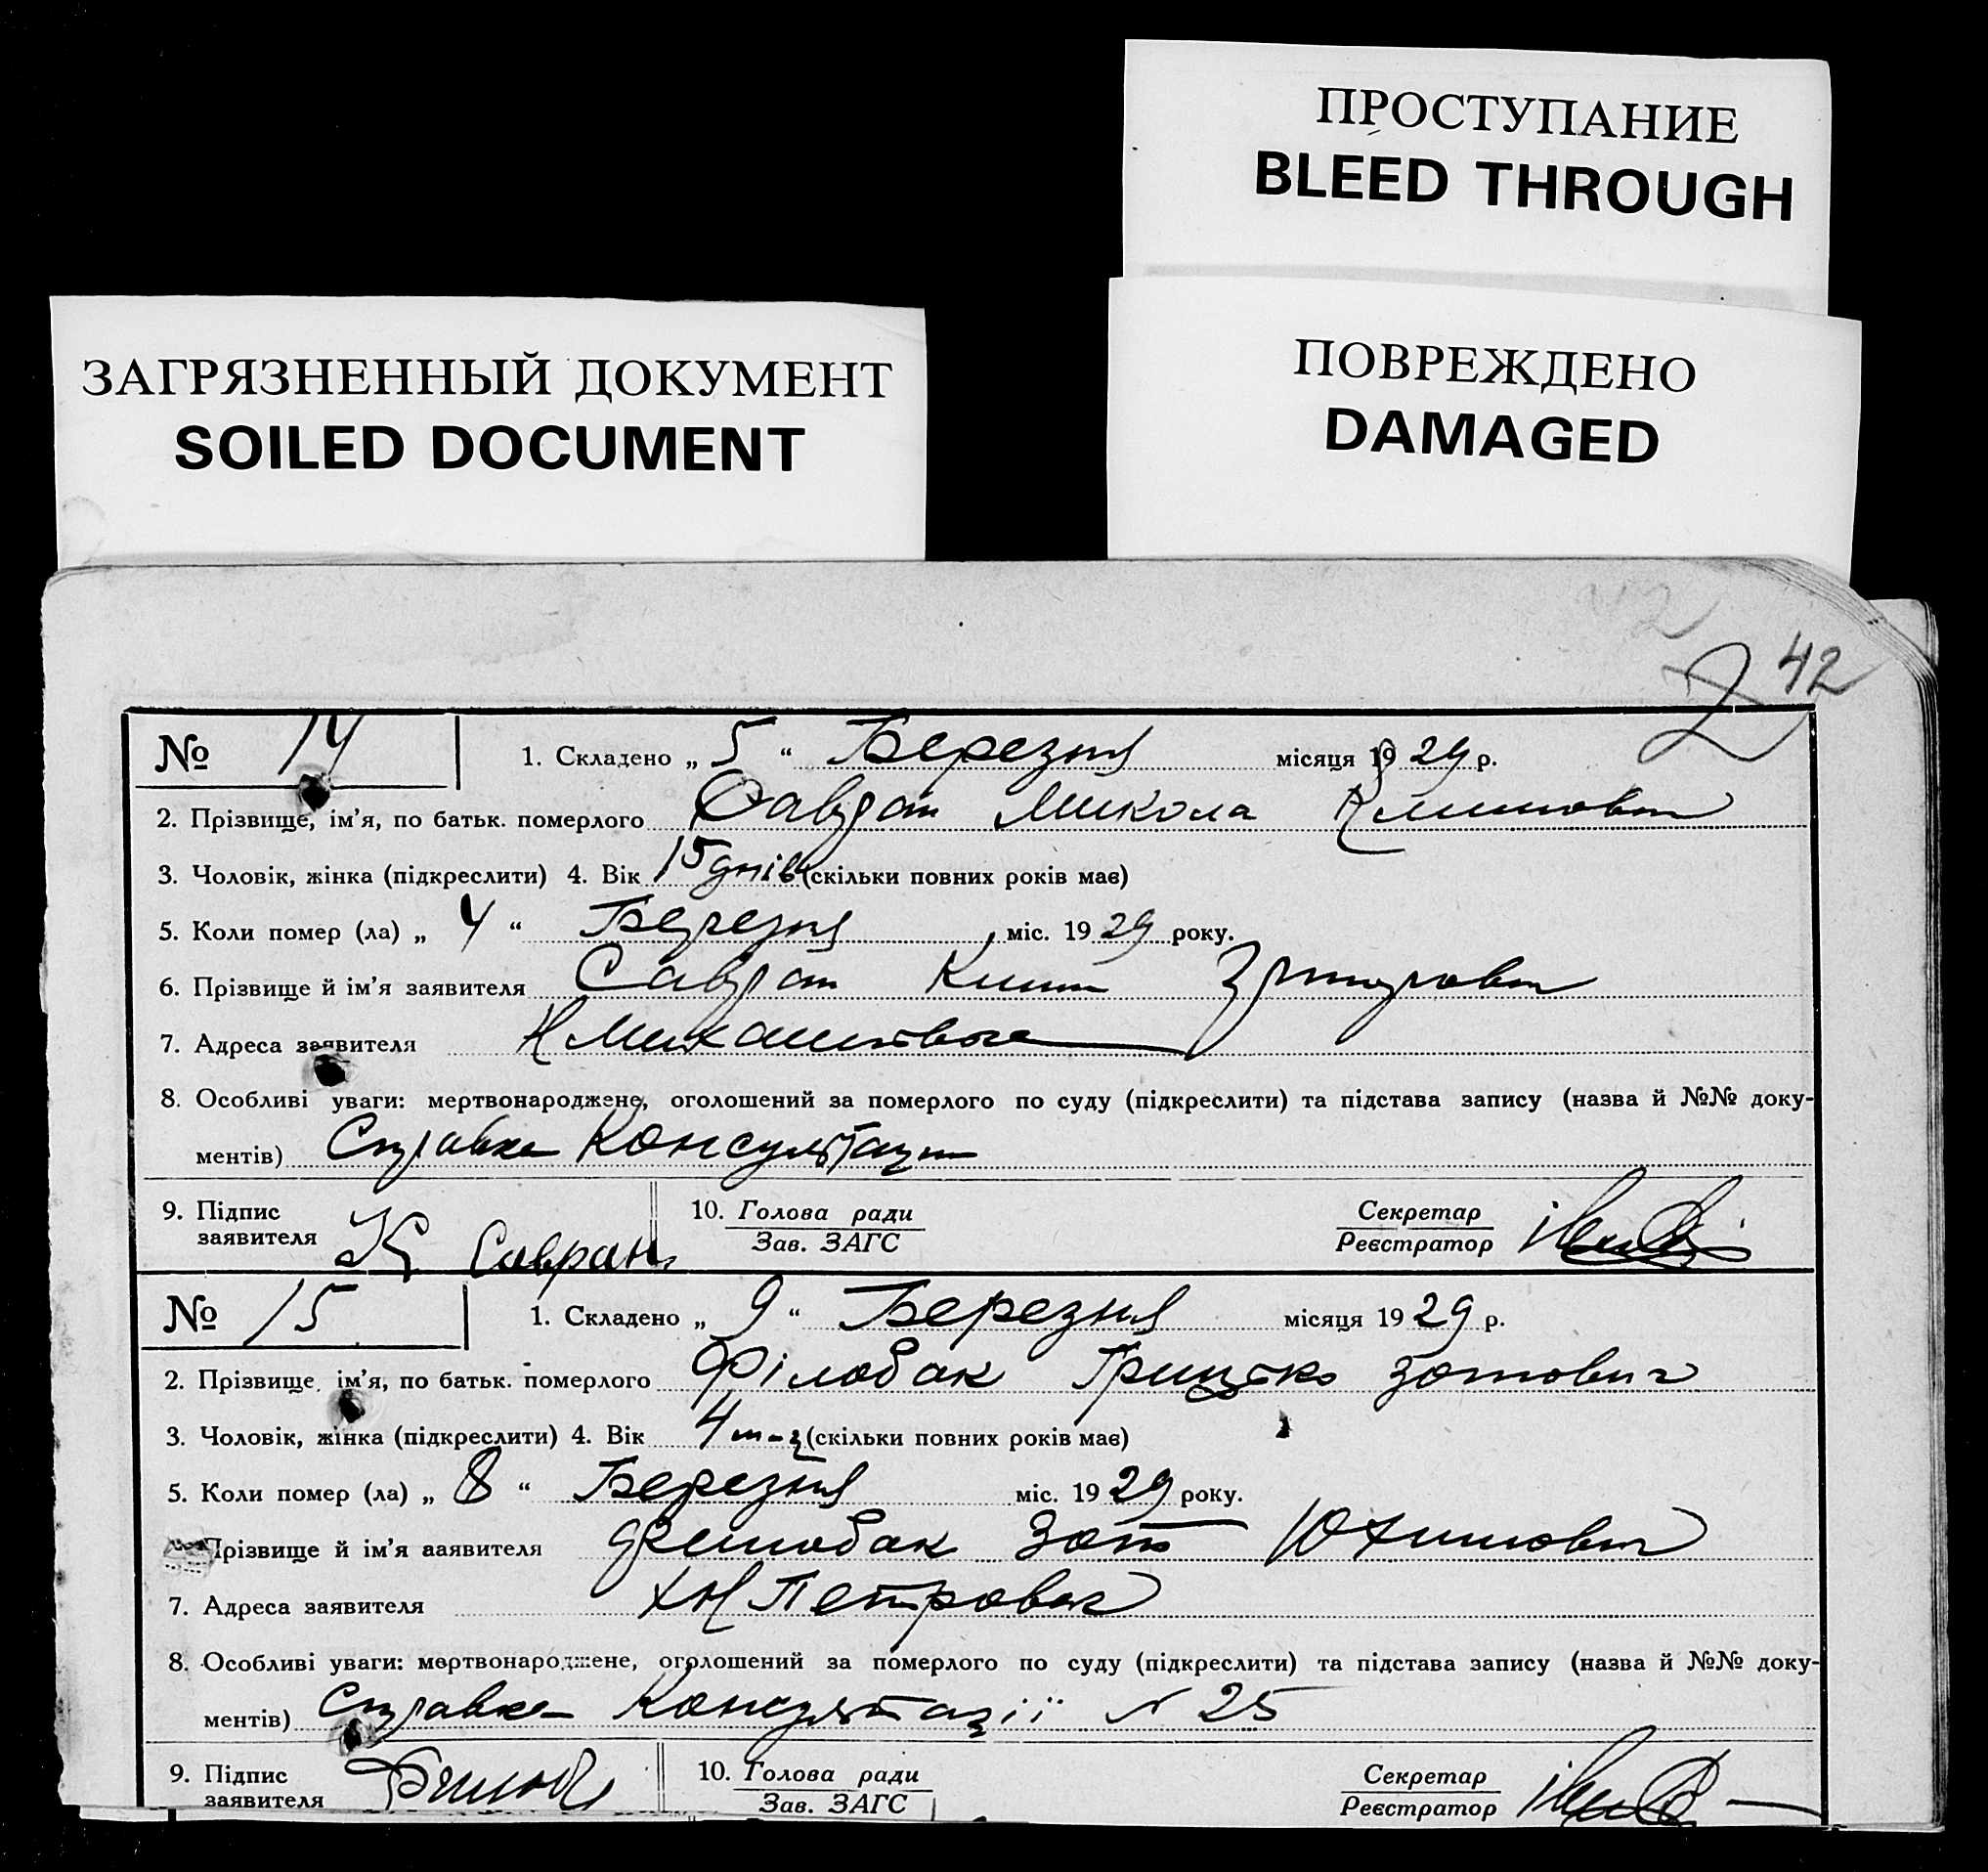 ПРОСТУПАНИЕ
BLEED THROUGH
ЗАГРЯЗНЕННЫЙ ДОКУМЕНТ
SOILED DOCUMENT
ПОВРЕЖДЕНО
DAMAGED
42
2 42
№ 14 1. Складено „ 5 “ Березня місяця 1929 р.
2. Прізвище, ім'я, по батьк. померлого Савран Микола
3. Чоловік, жінка (підкреслити) 4. Вік 15 днів (скільки повних років має)
5. Коли помер (ла) „ 4 “ Березня міс. 1929 року.
6. Прізвище й ім'я заявителя Савран
7. Адреса заявителя
8. Особливі уваги: мертвонароджене, оголошений за померлого по суду (підкреслити) та підстава запису (назва й №№ доку-
ментів) Справка Консультации
9. Підпис заявителя К Савран 10. Голова ради Зав. ЗАГС Секретар Реєстратор
№ 15 1. Складено „ 9 “ Березня місяця 1929 р.
2. Прізвище, ім'я, по батьк. померлого Філобак Грицько Зотович
3. Чоловік, жінка (підкреслити) 4. Вік 4 (скільки повних років має)
5. Коли помер (ла) „ 8 “ Березня міс. 1929 року.
Прізвище й ім'я заявителя Филобак Зот Юхимович
7. Адреса заявителя
8. Особливі уваги: мертвонароджене, оголошений за померлого по суду (підкреслити) та підстава запису (назва й №№ доку-
ментів) Справка Консультації N 25
9. Підпис заявителя 10. Голова ради Зав. ЗАГС Секретар Реєстратор